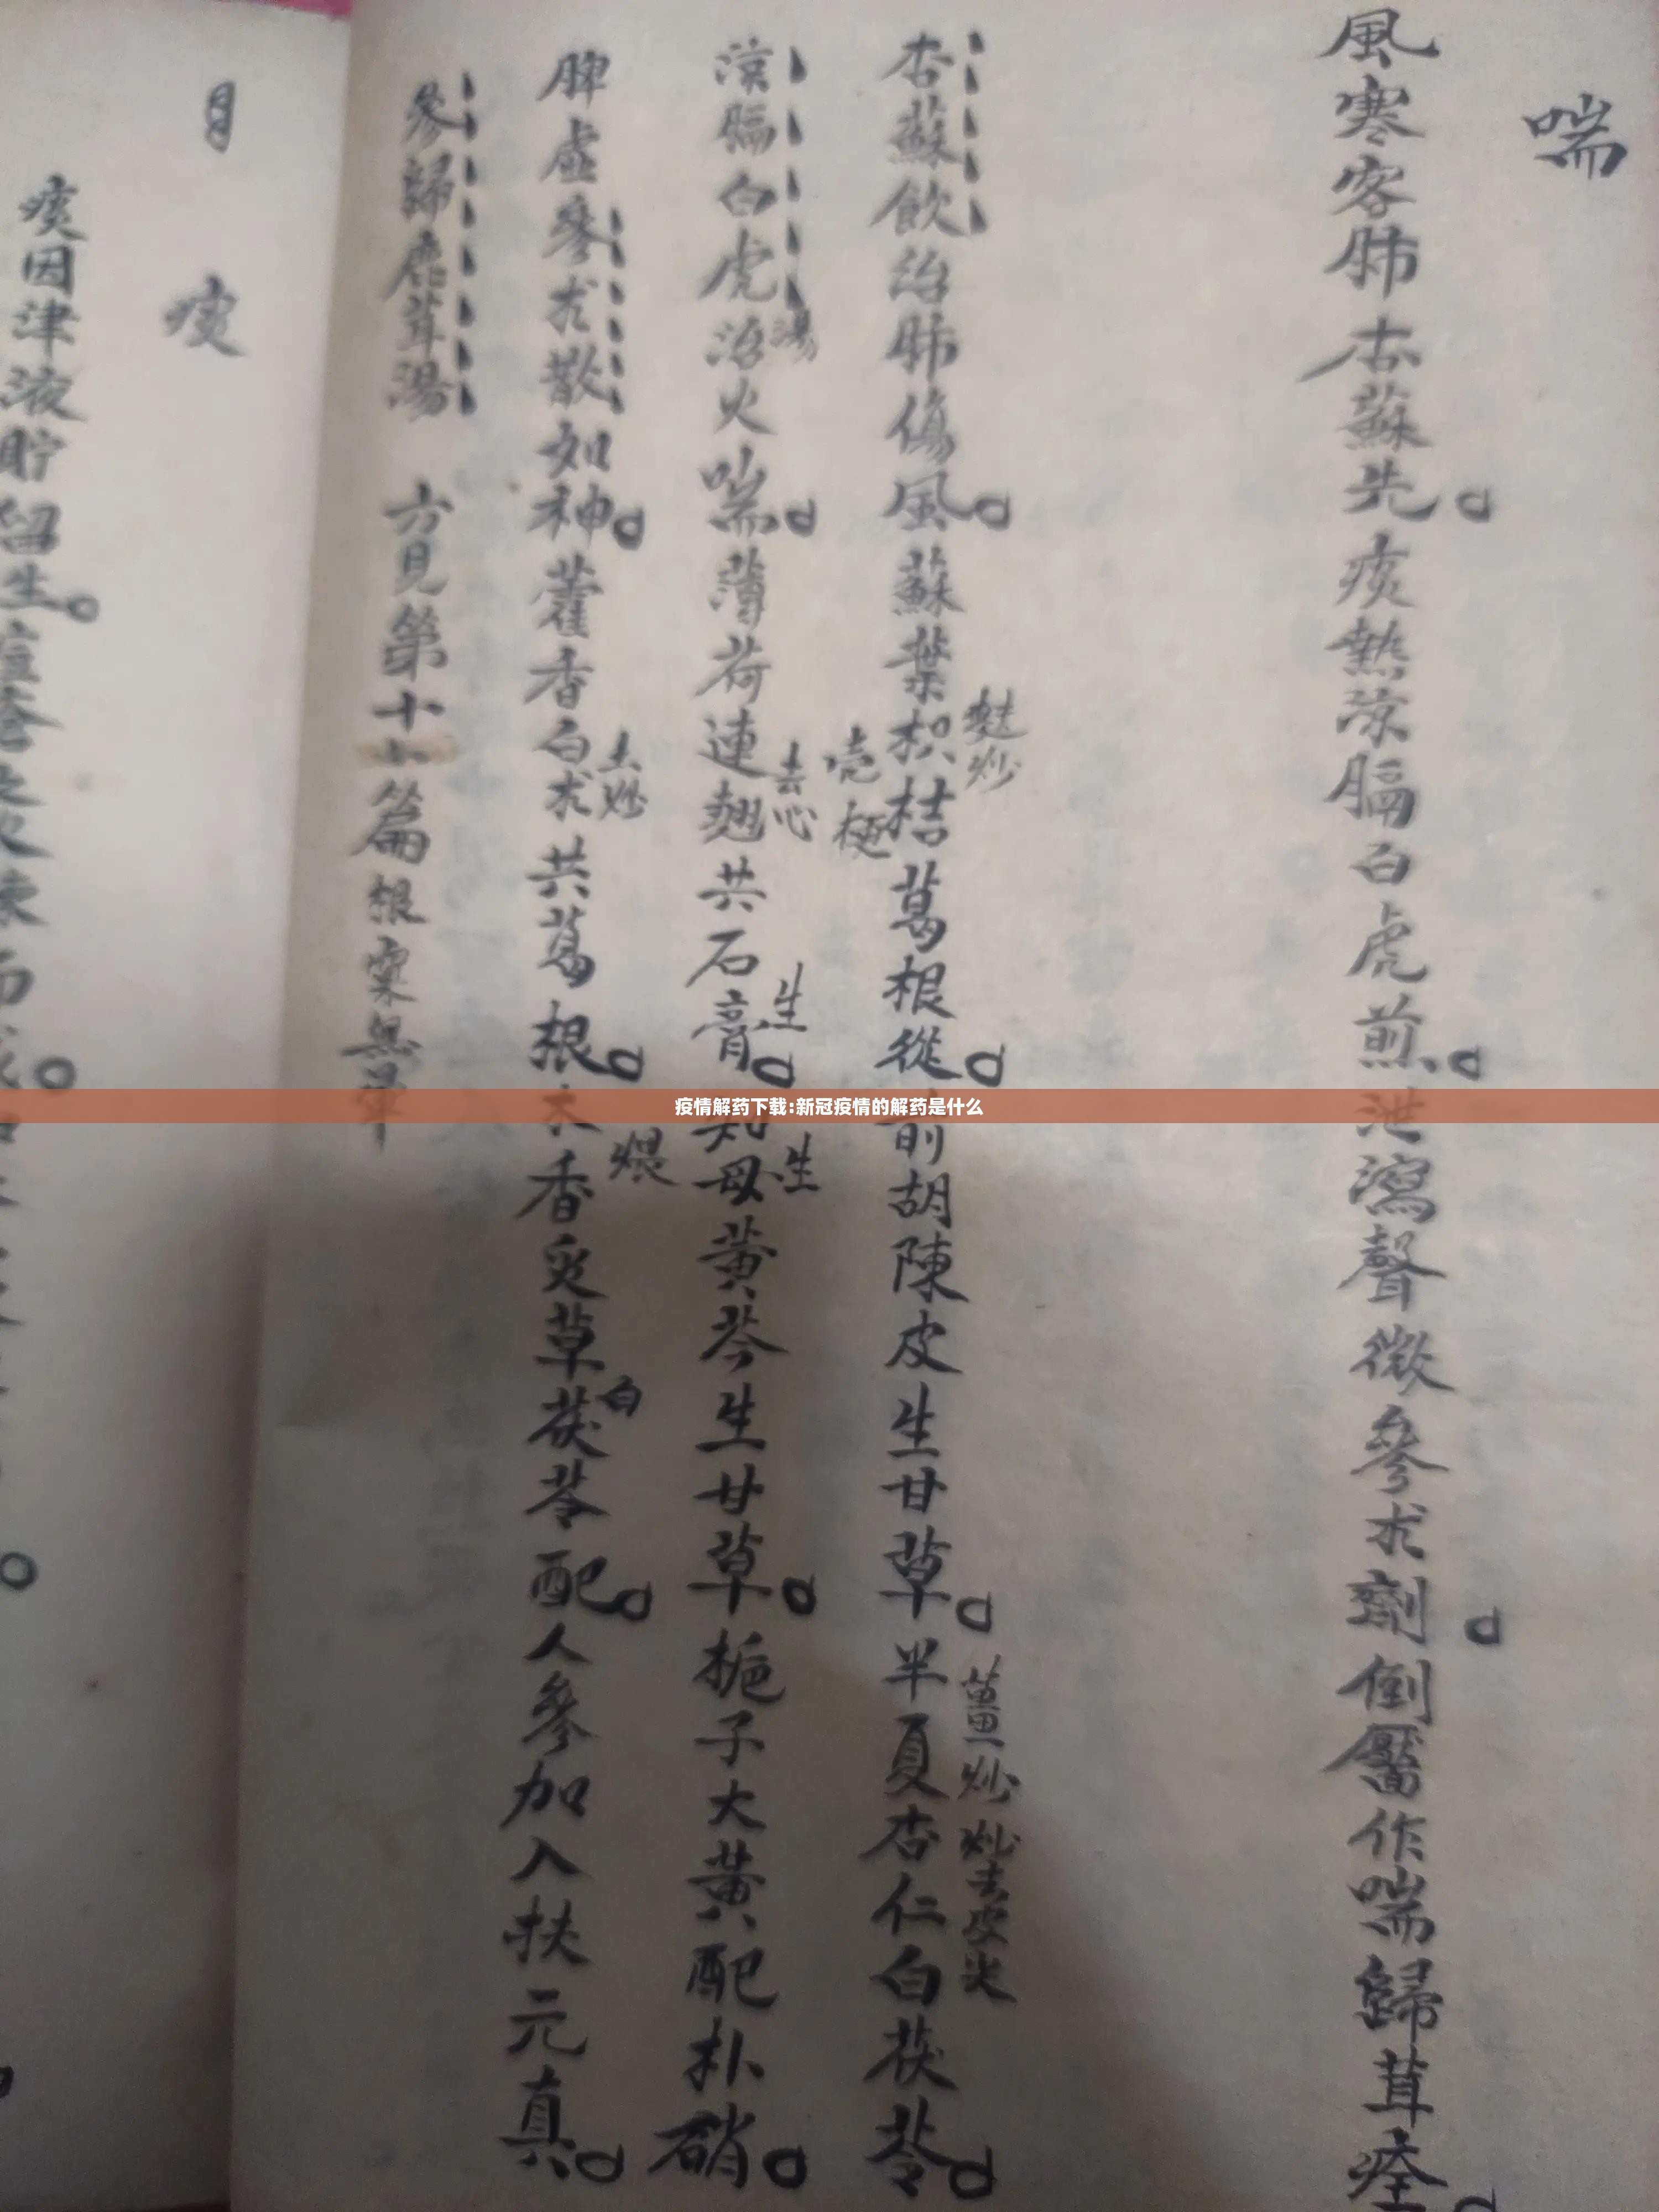 喘
風寒客肺杏蘇先。痰熱涼膈白虎煎。泄瀉聲微參朮劑。倒靨作喘歸茸痊。
杏蘇飲治肺傷風。蘇葉枳桔葛根從。前胡陳皮生甘草。半夏杏仁白茯苓。
麩炒
壳梗
薑炒
炒去皮尖
涼膈白虎治火喘。薄荷連翹共石膏。知母黃芩生甘草。梔子大黃配朴硝。
湯
去心
生
生
脾虛參朮散如神。藿香白朮共葛根。木香炙草茯苓配。人參加入扶元真。
土炒
煨
白
參歸鹿茸湯 方見第十
篇根窠無暈
痰
痰因津液貯留生。
疫情解药下载:新冠疫情的解药是什么